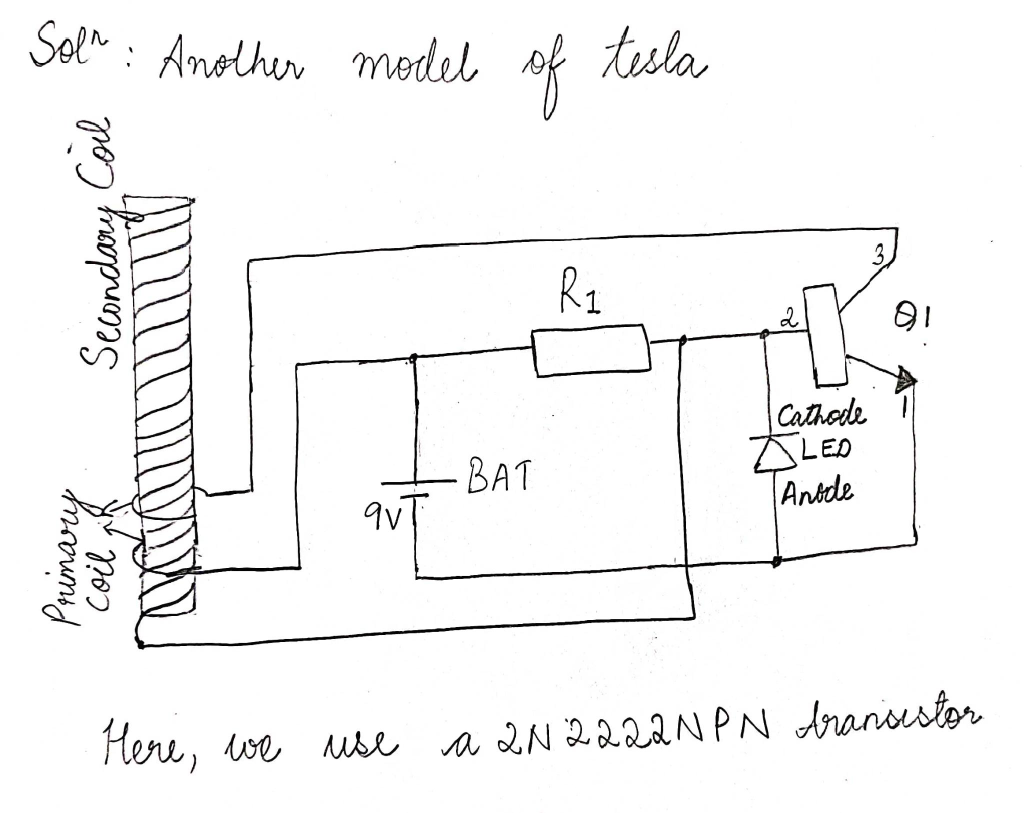 Solⁿ : Another model of tesla
Secondary Coil
Primary
coil
R1
3
2
Q1
1
Cathode
LED
Anode
BAT
9V
Here, we use a 2N2222NPN transistor